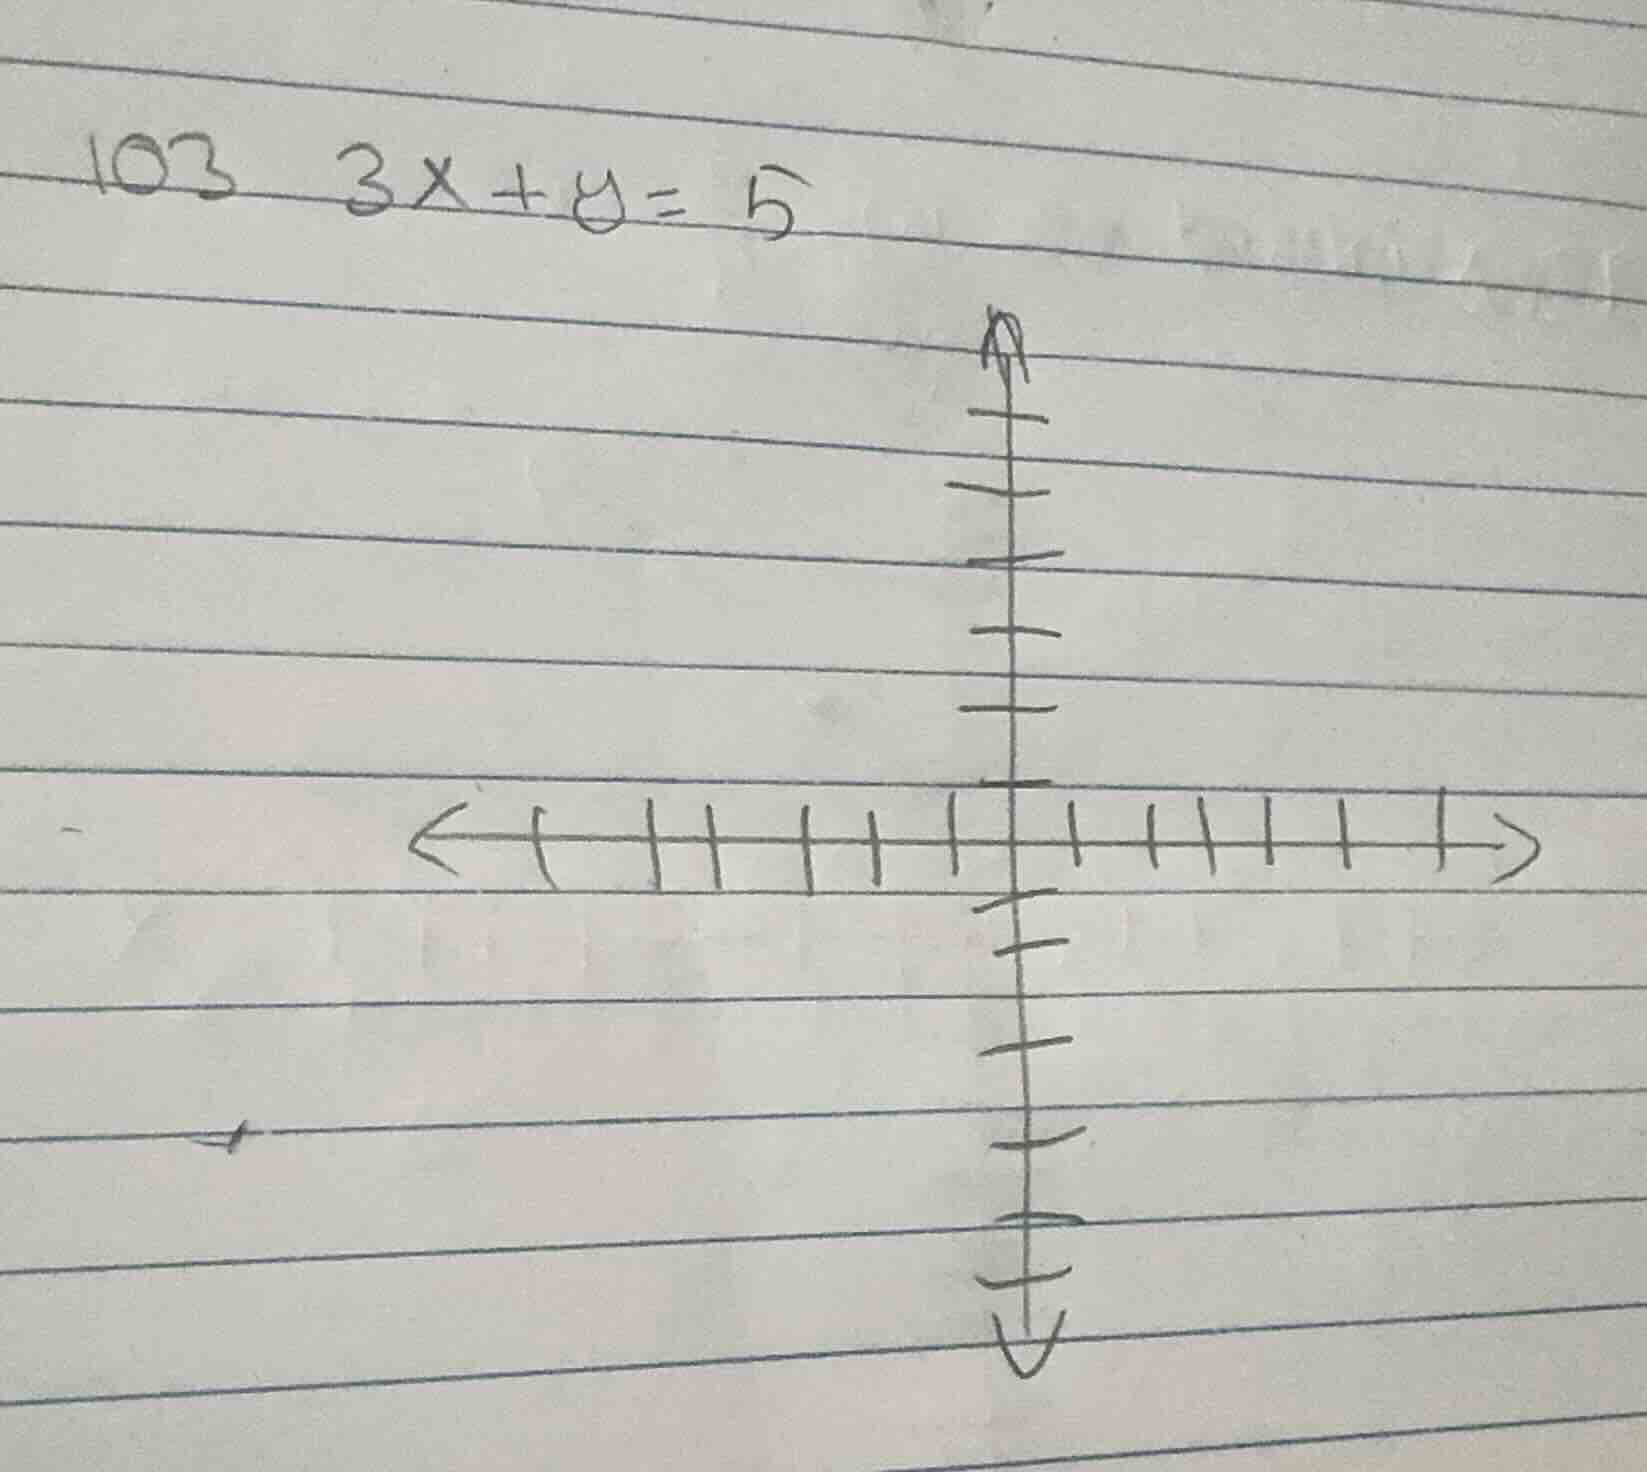 103 3x+y= 5